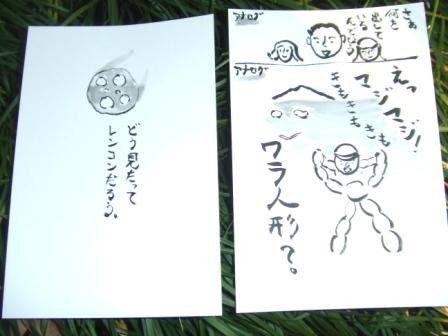 どう見たって
レンコンだろう。
アナログ
さあ
何を
出して
いる
んでしょう
アナログ
えっ
マジマジ!
きもきもきも
ワラ人形て。